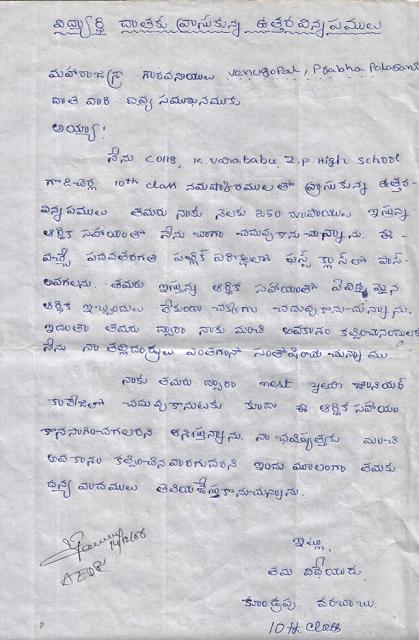 విద్యార్థి దాతకు వ్రాసుకున్న ఉత్తర విన్నపములు
మహారాజశ్రీ గౌరవనీయులు venugopal, Prabha
దాత వారి దివ్య సముఖమునకు
అయ్యా!
నేను C0118, K. varababu, Z.P. High School
10th class నమస్కారములతో వ్రాసుకున్న ఉత్తర-
విన్నపములు తమరు నాకు నెలకు రూపాయలు ఇస్తున్న
ఆర్థిక సహాయంతో నేను బాగా చదువుకొనుచున్నాను. ఈ-
వచ్చే పదవతరగతి పబ్లిక్ పరీక్షలలో ఫస్ట్ క్లాస్‌లో పాస్-
అవగలను. తమరు ఇస్తున్న ఆర్థిక సహాయంతో
ఆర్థిక ఇబ్బందులు లేకుండా చక్కగా చదువుకొనుచున్నాను.
ఇదంతా తమరు ద్వారా నాకు మంచి అవకాశం
నేను నా తల్లిదండ్రులు ఎంతగానో సంతోషించుచున్నాము.
నాకు తమరు ద్వారా next ఇయర్ జూనియర్
కాలేజిలో చదువుకొనుటకు కూడా ఈ ఆర్థిక సహాయం
కొనసాగించగలరని ఆశిస్తున్నాను. నా భవిష్యత్తుకు మంచి
అవకాశం కల్పించిన వారగుదురని ఇందు మూలంగా తమకు
ధన్యవాదములు తెలియజేస్తుకొనుచున్నాను.
ఇట్లు
తమ విధేయుడు.
వరబాబు
10th class